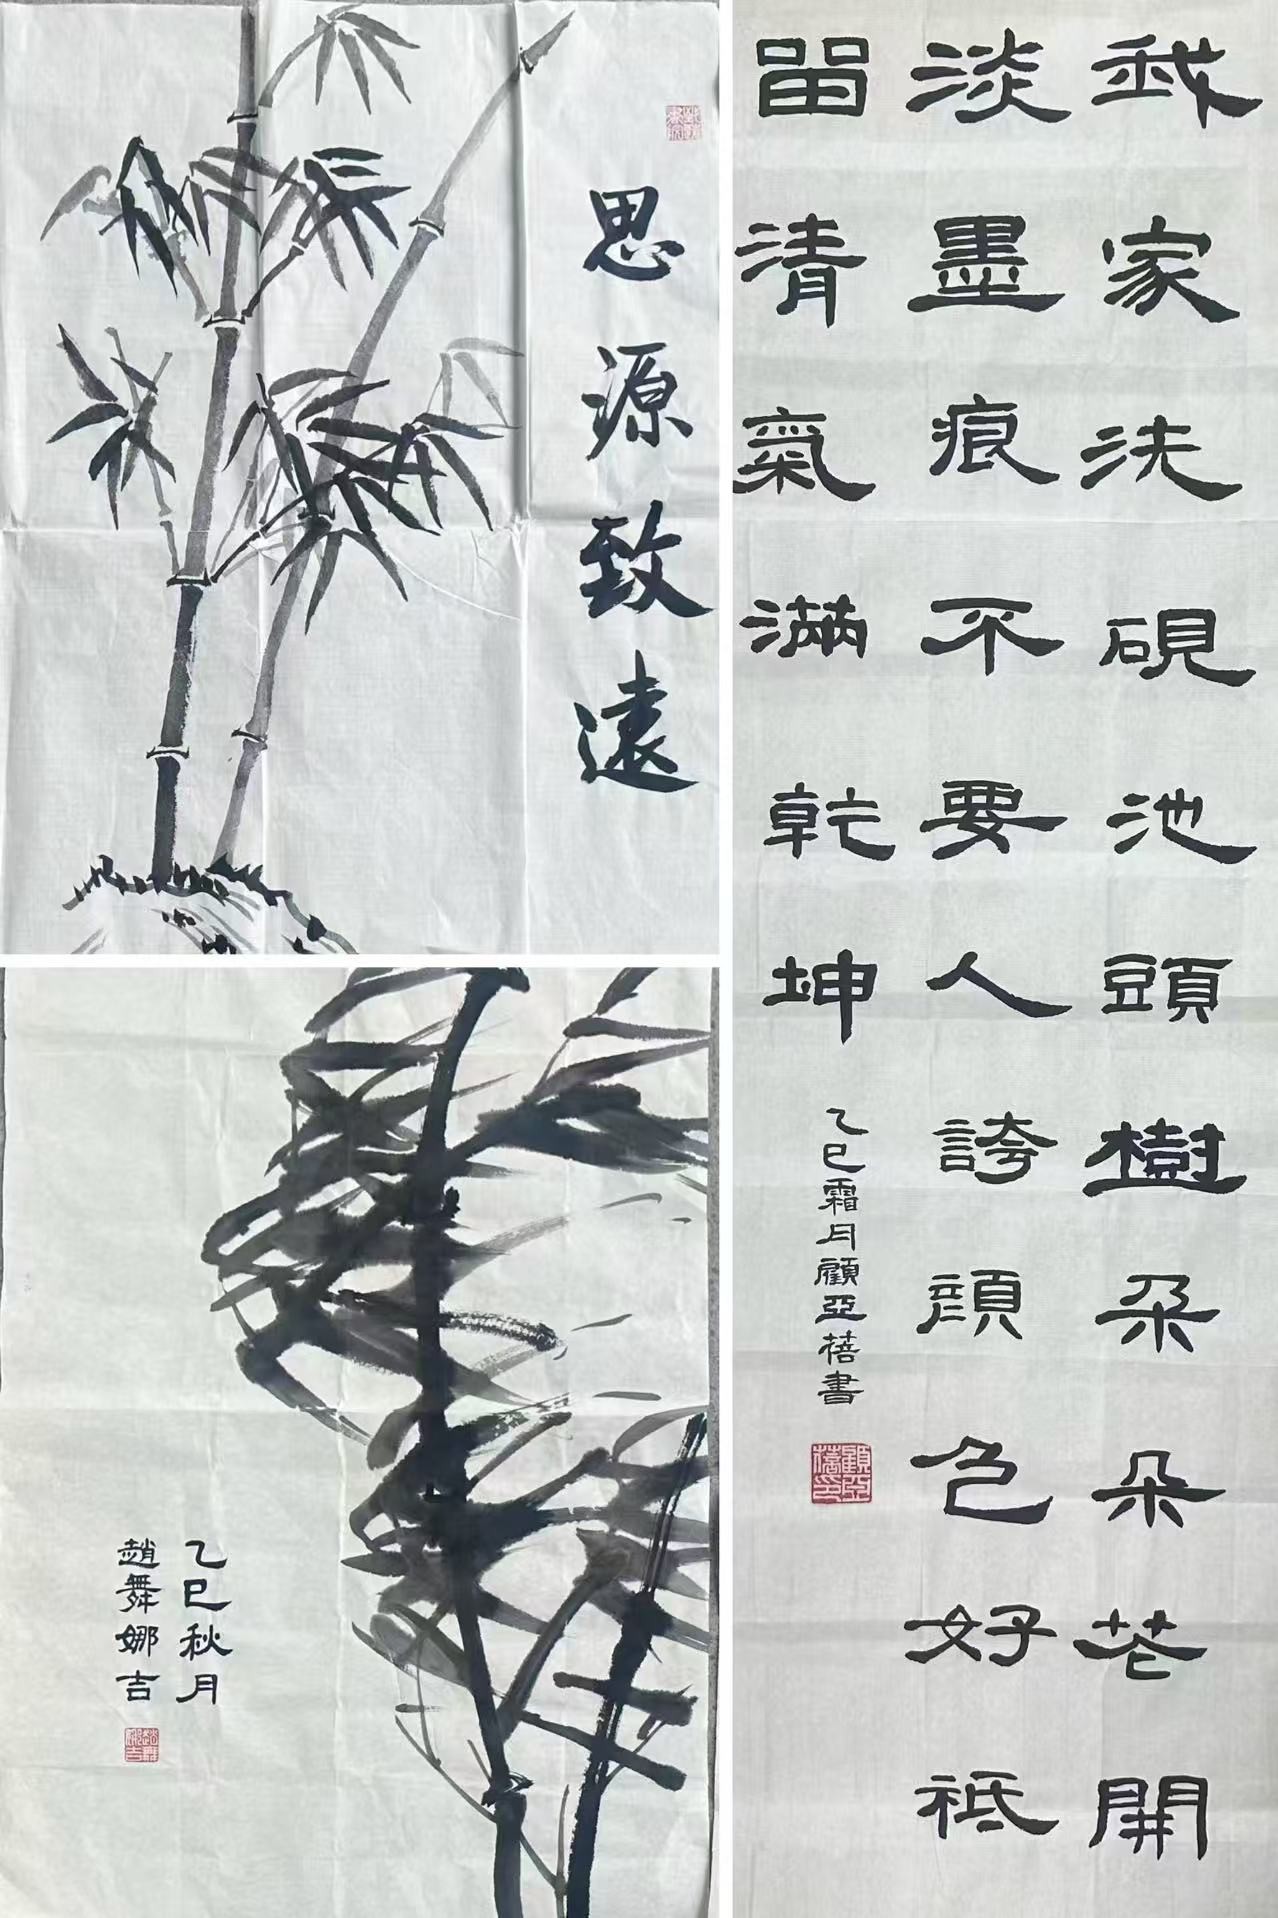 思源致遠
乙巳秋月
趙舞娜吉
趙舞娜吉
我家洗硯池頭樹朵朵花開
淡墨痕不要人誇顏色好祇
留清氣滿乾坤
乙巳霜月顧亞蓓書
顧亞蓓印